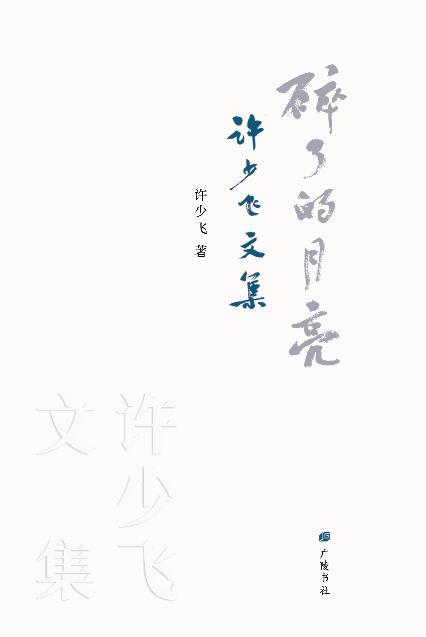 碎了的月亮
许少飞文集
许少飞 著
许少飞
文集
广陵书社